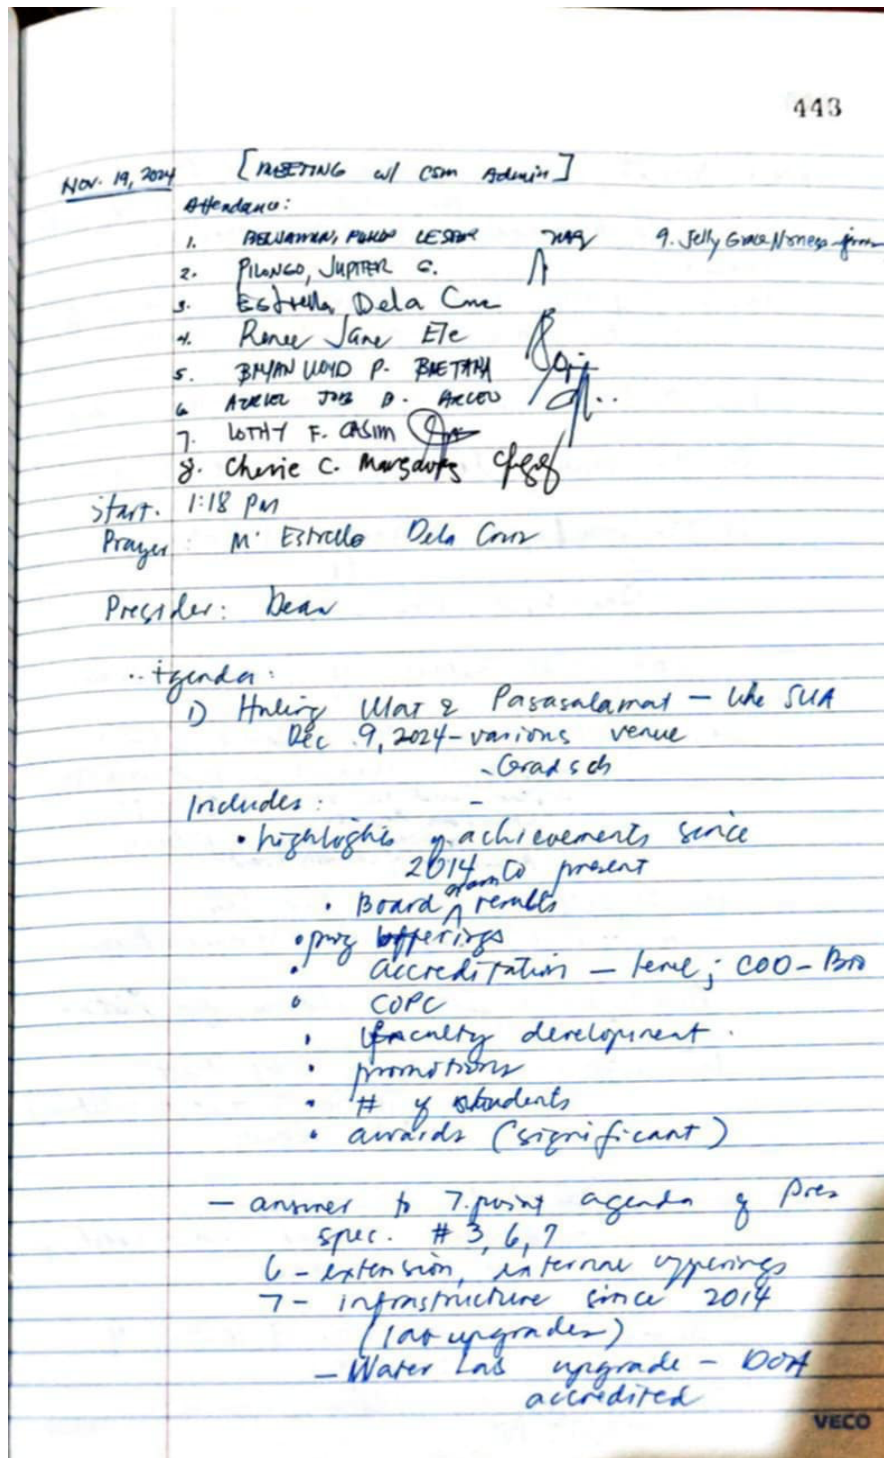 443
Nov. 19, 2024 [MEETING w/ CSM Admin]
Attendance:
1. BENJAMIN, LESTER 9. Jelly Grace
2. PILONGO, JUPITER G.
3. Estrella Dela Cruz
4. Renee Jane Ele
5. BRYAN LLOYD P. BRETAÑA
6 AZRIEL JOEB D. ARCEO
7. LOTHY F. CASIM
8. Cherie C.
Start. 1:18 PM
Prayer: M' Estrella Dela Cruz
Presider: Dean
Agenda:
1) Huling Ulat & Pasasalamat – like SUA
Dec. 9, 2024 – various venue
- Grad sch
Includes: -
• highlights of achievements since
2014 to present
• Board exam results
• prog offerings
• accreditation – level; COD – Bio
• COPC
• faculty development.
• promotions
• # of students
• awards (significant)
– answer to 7.point agenda of Pres
spec. # 3, 6, 7
6 – extension, external offerings
7 – infrastructure since 2014
(lab upgrades)
– Water Lab upgrade – DOH
accredited
VECO